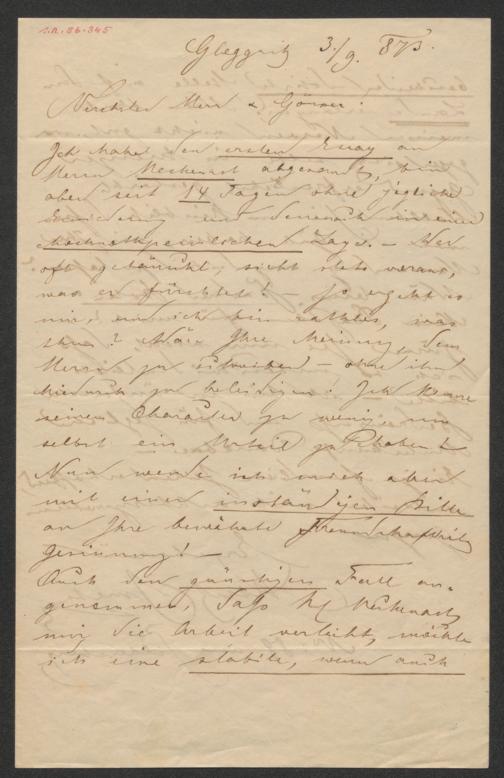 I.N. 36.345
Gleggnitz 3./9. 873.
Verehrter Herr v. Görner!
Ich habe den ersten Essay an
Herrn abgesandt, bin
aber seit 14 Tagen ohne jegliche
Erwiderung und demnach in einer
hochnothpeinlichen Lage. – Wer
oft getäuscht, sieht stets voraus,
was er fürchtet! – So ergeht es
mir, und ich bin rathlos, was
thun? Wäre Ihre Meinung, dem
Herrn zu schreiben – ohne ihn
hiedurch zu beleidigen? Ich kenne
seinen Charakter zu wenig um
selbst ein Urteil zu haben!
Nun wende ich mich aber
mit einer inständigen Bitte
an Ihre bewährte Freundschafts
Gesinnung! –
Auch den günstigen Fall an-
genommen, daß
mir die Arbeit verleiht, möchte
ich eine stabile, wenn auch